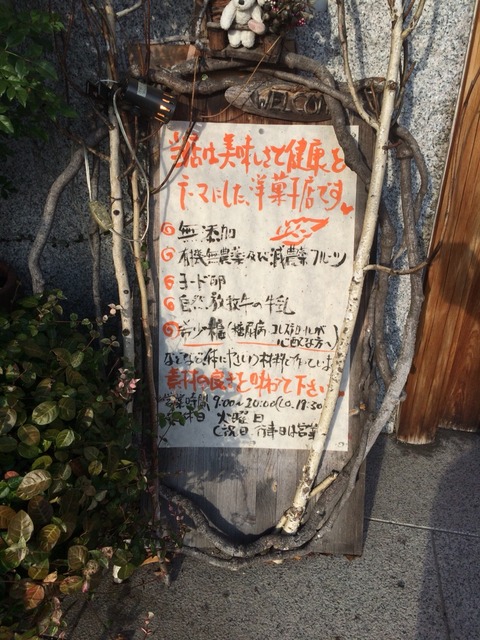 WELCOME
当店は美味しさと健康を
テーマにした洋菓子店です
無添加
有機無農薬及び減農薬フルーツ
ヨード卵
自然放牧牛の牛乳
希少糖(糖尿病 コレステロールが
心配な方へ)
などなど体にやさしい材料で作っていま
素材の良さを味わって下さい
営業時間 9:00~20:00(L.O.19:30
定休日 火曜日
(祝日、行事日は営業